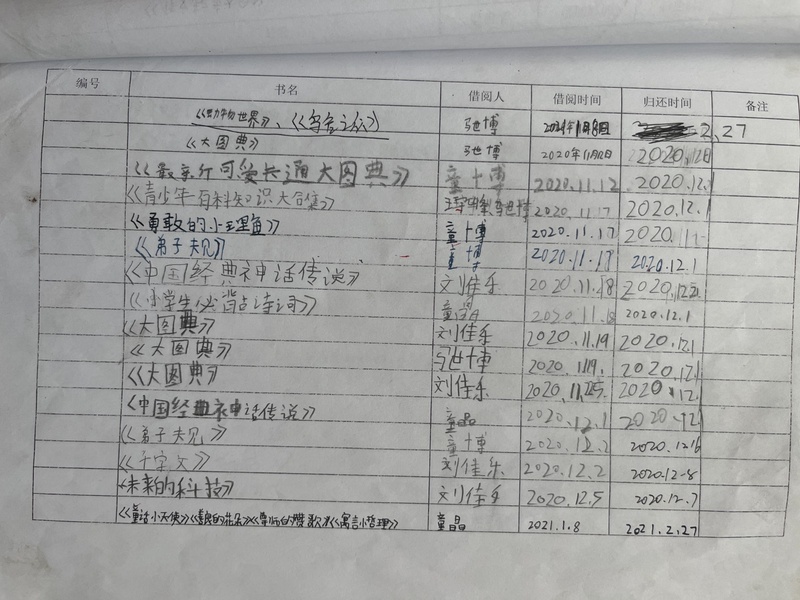 编号 书名 借阅人 借阅时间 归还时间 备注
《动物世界》、《 博 2.27
《大图典》 博 2020年11月 2020.12
大图典》 童博 2020.11.12 2020.12.1
《青少年百科知识大合集》 2020.11.17 2020.12.1
《勇敢的小王 童博 2020.11.17 2020.11
《弟子夫见》 童博 2020.11.17 2020.12.1
《中国经典神话传说》 刘佳乐 2020.11.18 2020.12
《小学生必背古诗词》 童晶 2020.11.18 2020.12.1
《大图典》 刘佳乐 2020.11.19 2020.12.1
《大图典》 博 2020.11.19. 2020.12.1
《大图典》 刘佳乐 2020.11.25. 2020.12.
《中国经典神话传说》 童晶 2020.12.1 2020.12
《弟子夫见》 童博 2020.12.2 2020.12.6
《千字文》 刘佳乐 2020.12.2 2020.12-8
《未来的科技》 刘佳乐 2020.12.5 2020.12.7
《童话小天使》《善良的花朵》《 歌》《寓言小哲理》 童晶 2021.1.8 2021.2.27